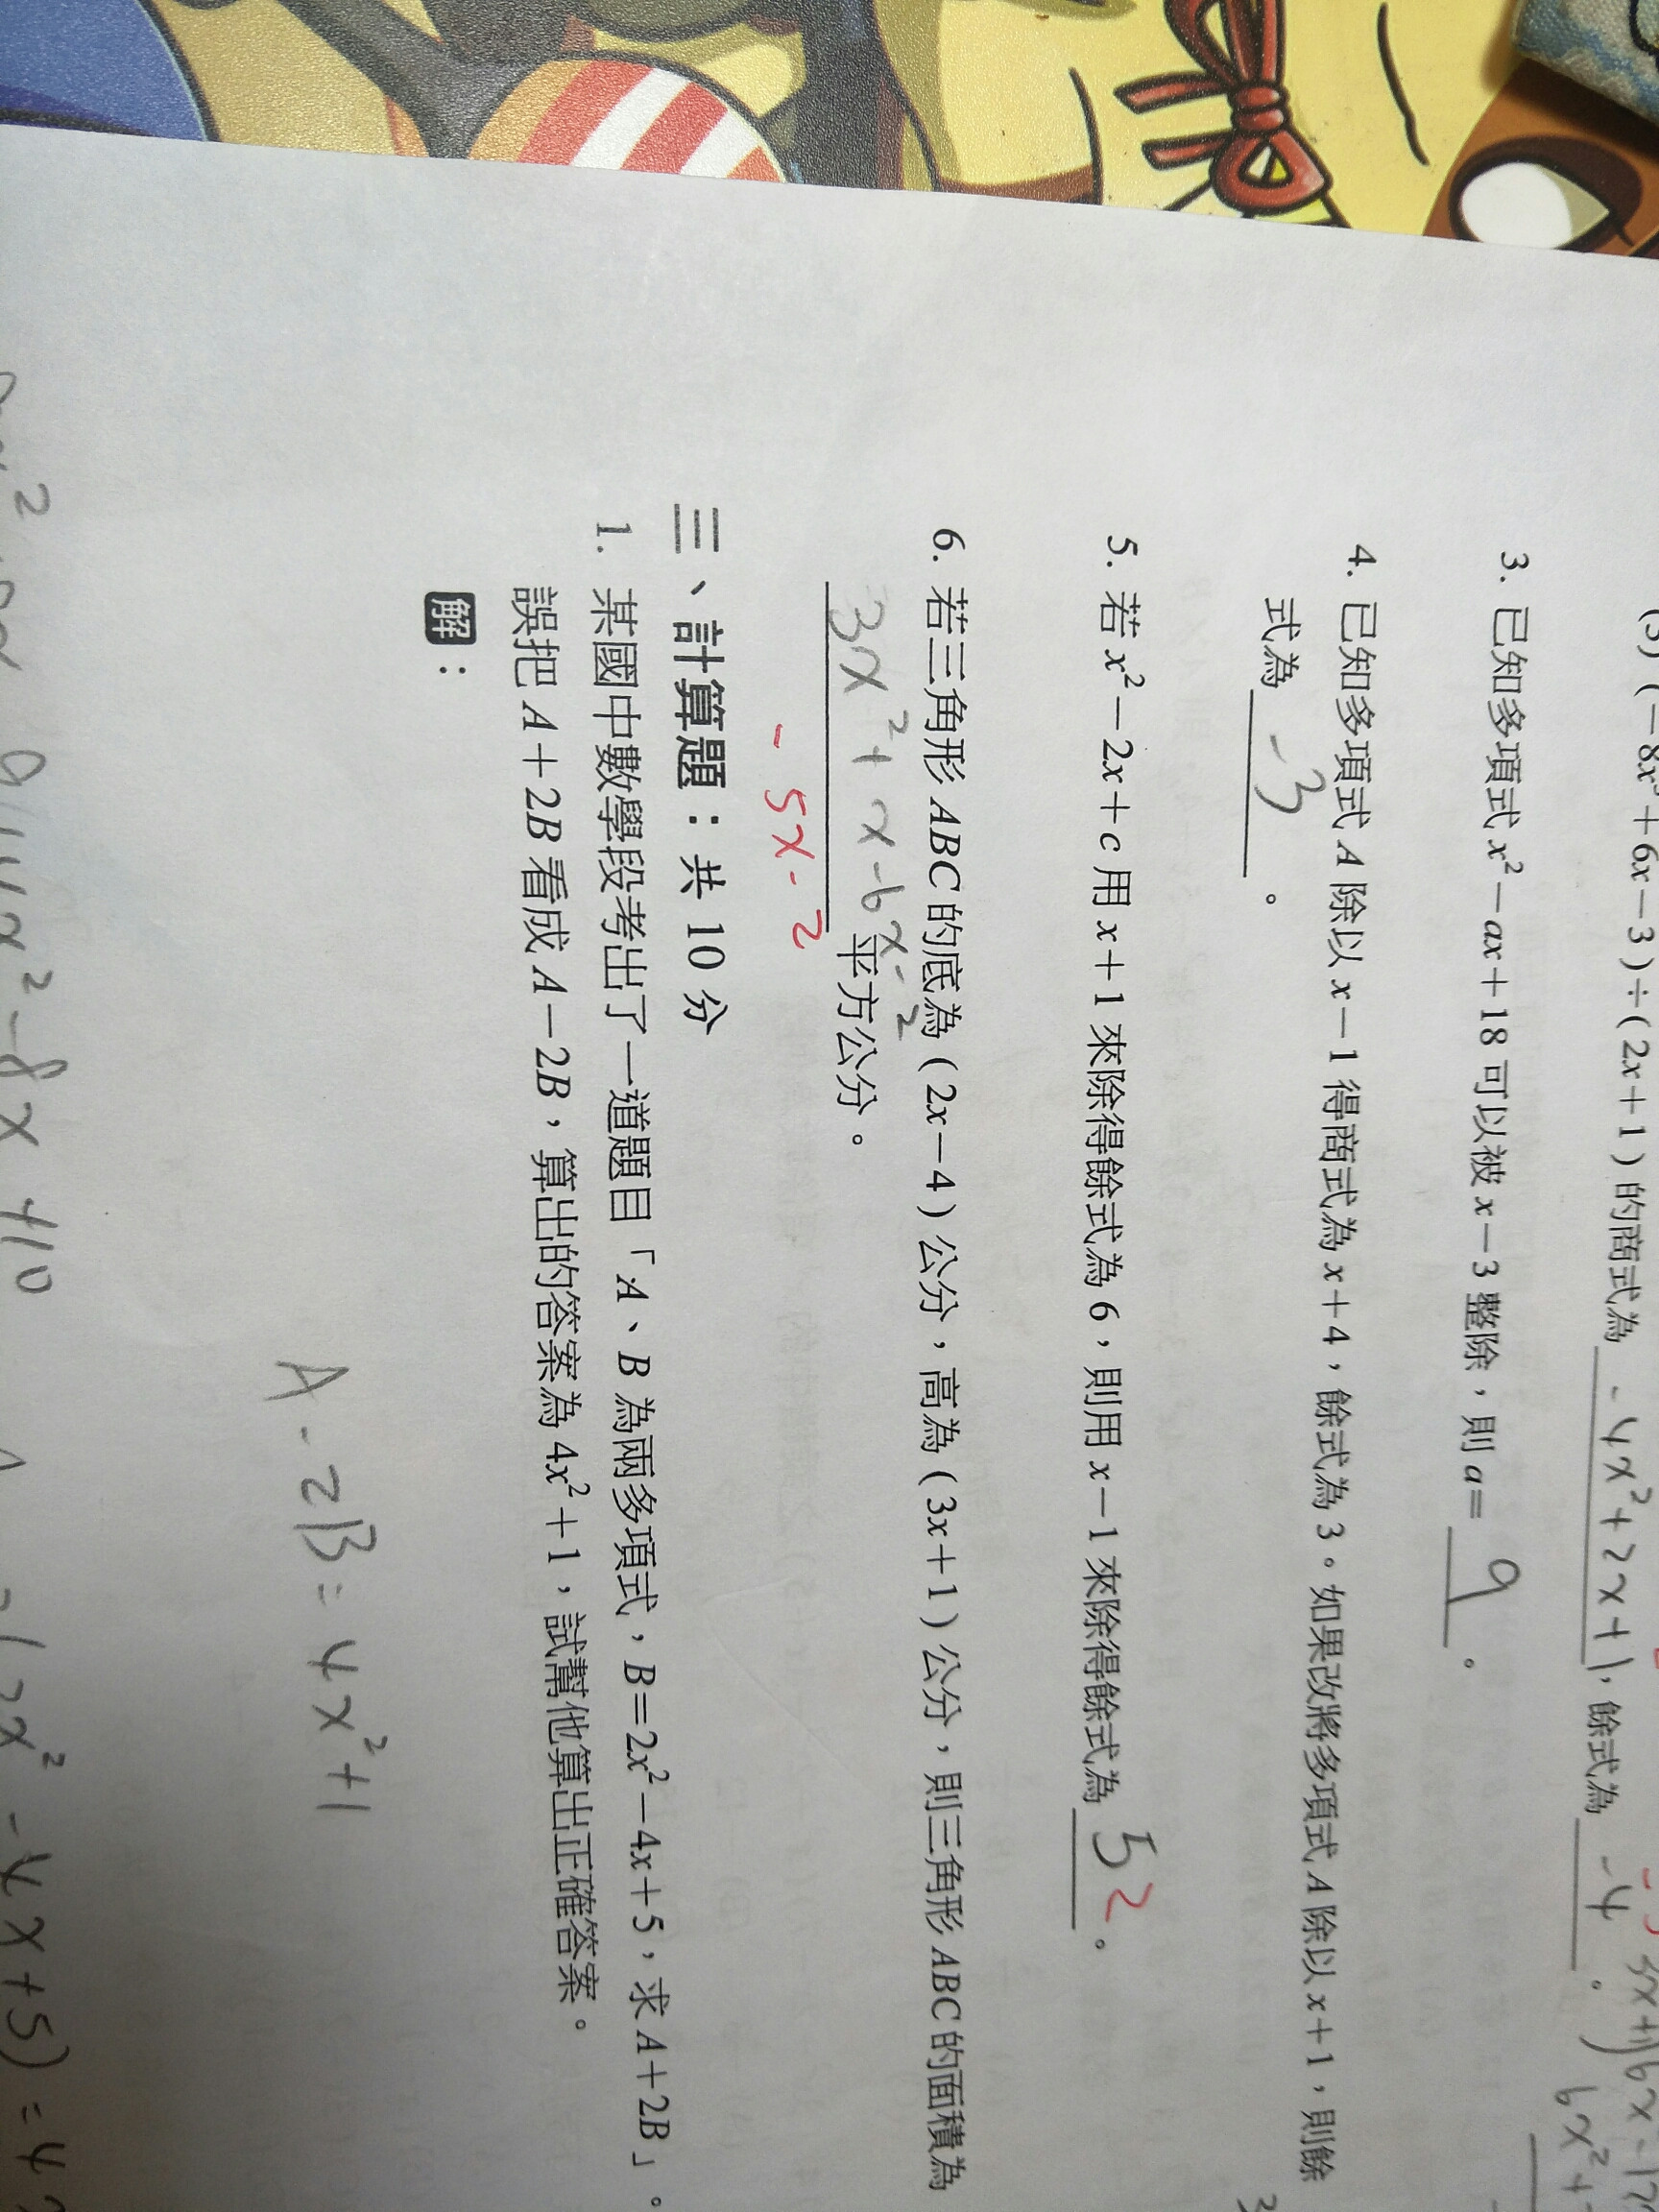 (−8x³+6x−3)÷(2x+1)的商式為 -4x²+2x+1,餘式為 -4 。
3. 已知多項式 x²−ax+18 可以被 x−3 整除,則 a= 9 。
4. 已知多項式 A 除以 x−1 得商式為 x+4,餘式為 3。如果改將多項式 A 除以 x+1,則餘
式為 -3 。
5. 若 x²−2x+c 用 x+1 來除得餘式為 6,則用 x−1 來除得餘式為 5 2 。
6. 若三角形 ABC 的底為(2x−4)公分,高為(3x+1)公分,則三角形 ABC 的面積為
3x²+x-6x-2 平方公分。
-5x-2
三、計算題:共 10 分
1. 某國中數學段考出了一道題目「A、B 為兩多項式,B=2x²−4x+5,求 A+2B」。
誤把 A+2B 看成 A−2B,算出的答案為 4x²+1,試幫他算出正確答案。
解:
A-2B=4x²+1